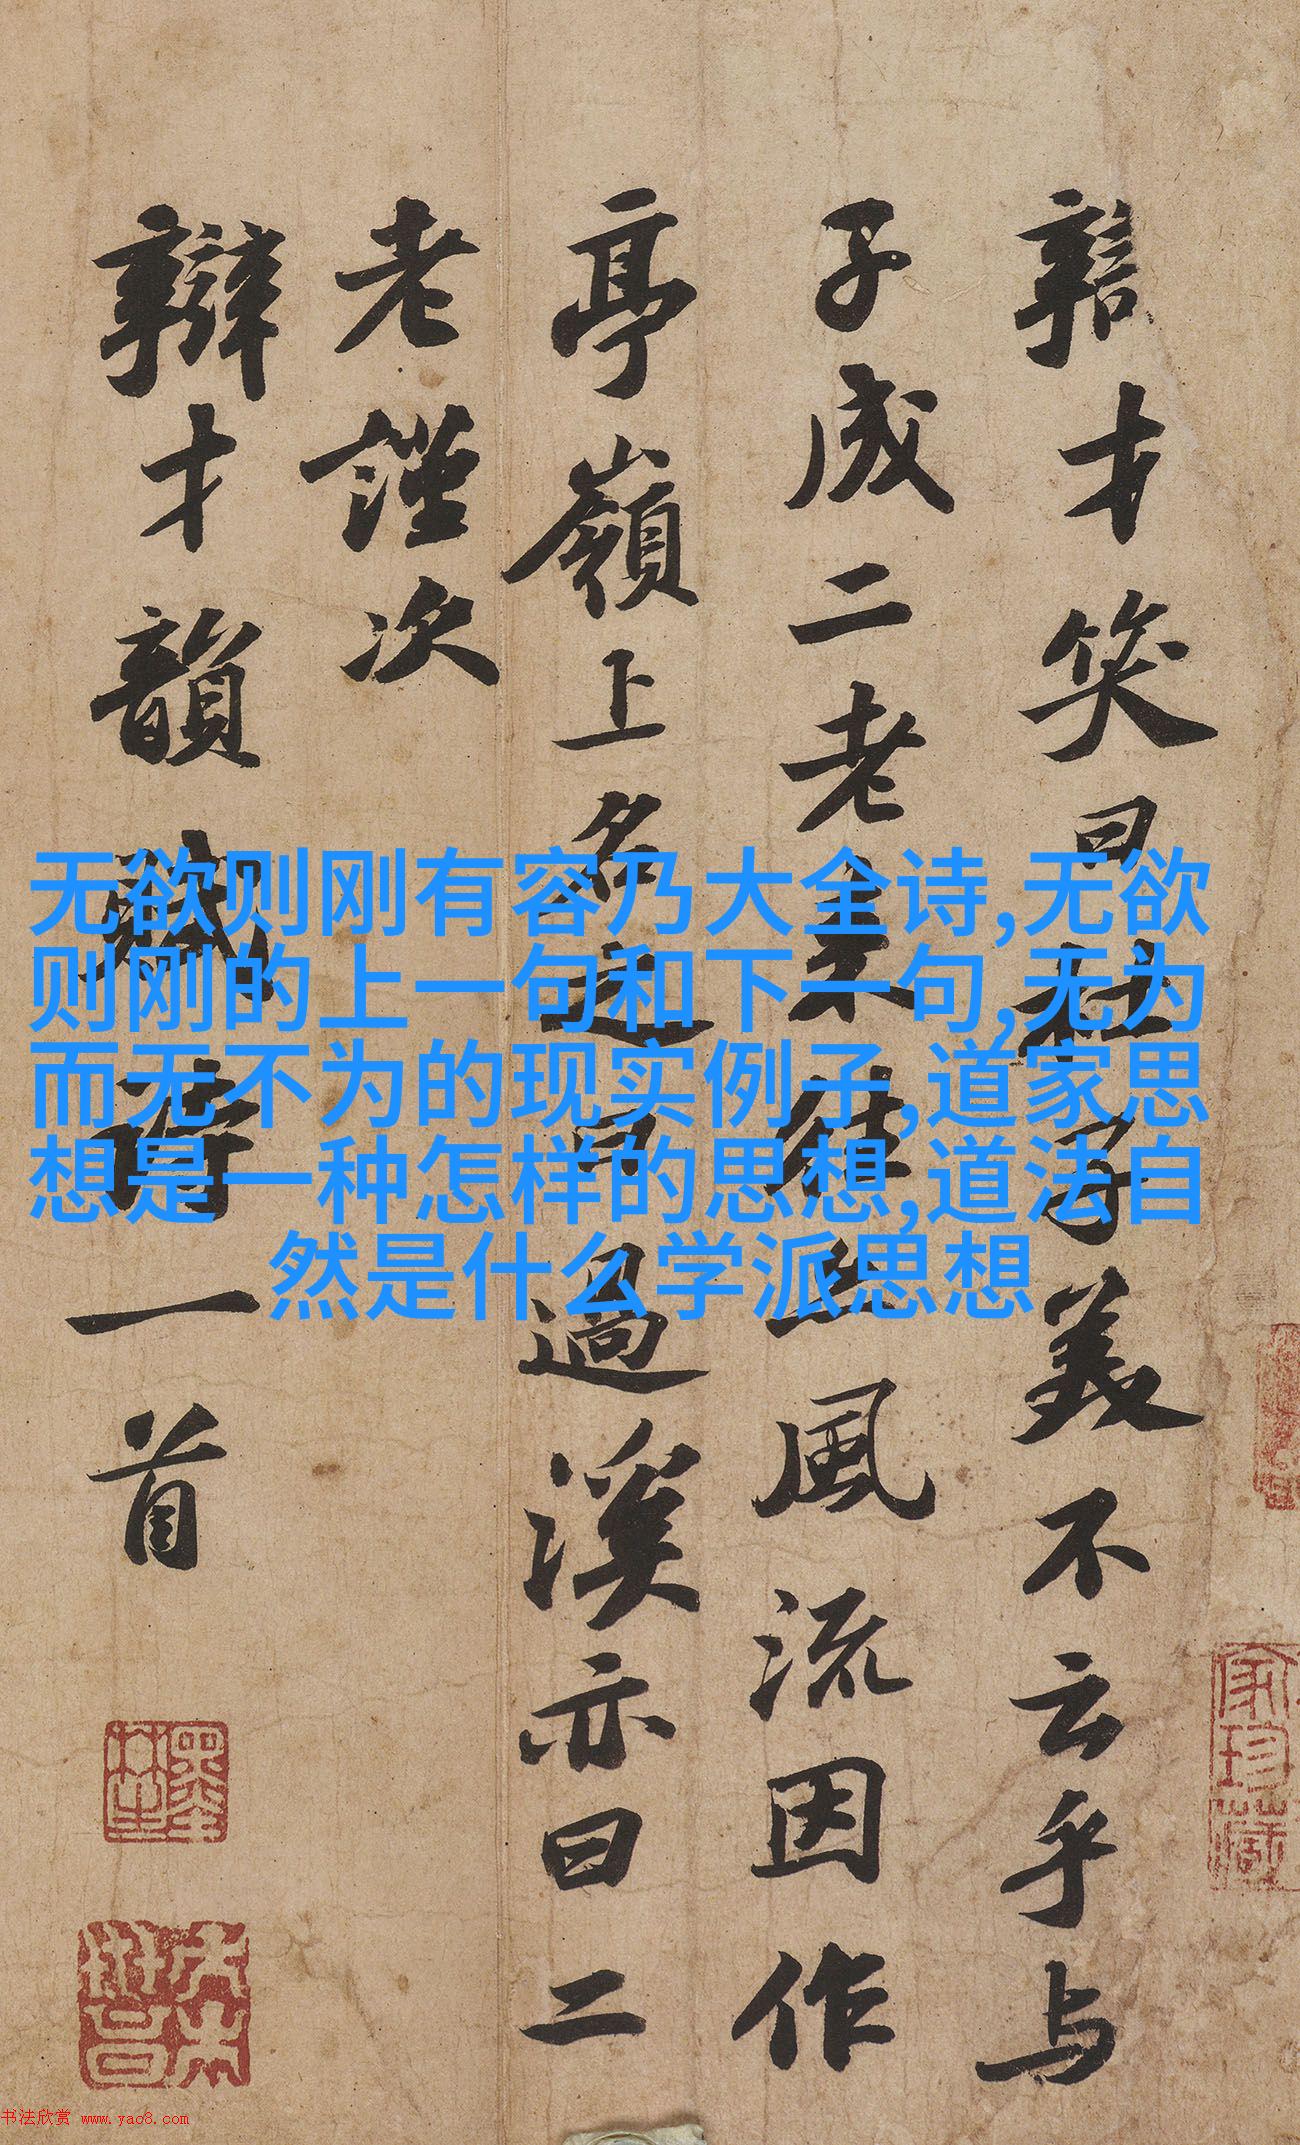 辯才笑曰杜子美不云乎与
子成二老来往亦風流因作
亭嶺上名之曰過溪亦曰二
老謹次
辯才韻賦詩一首
无欲则刚有容乃大全诗,无欲
则刚的上一句和下一句,无为
而无不为的现实例子,道家思
想是一种怎样的思想,道法自
然是什么学派思想
家珍藏
书法欣赏 www.yac8.com